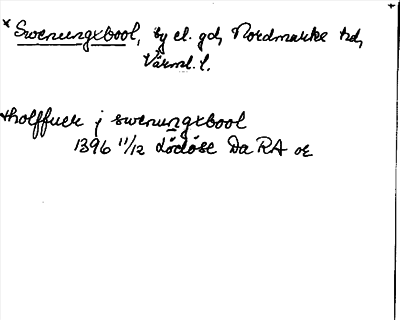 * Swenungxbool, by el. gd, Nordmarks hd,
Värml. l.
tholffuer j swenungxbool
1396 11/12 Lödöse Da RA or